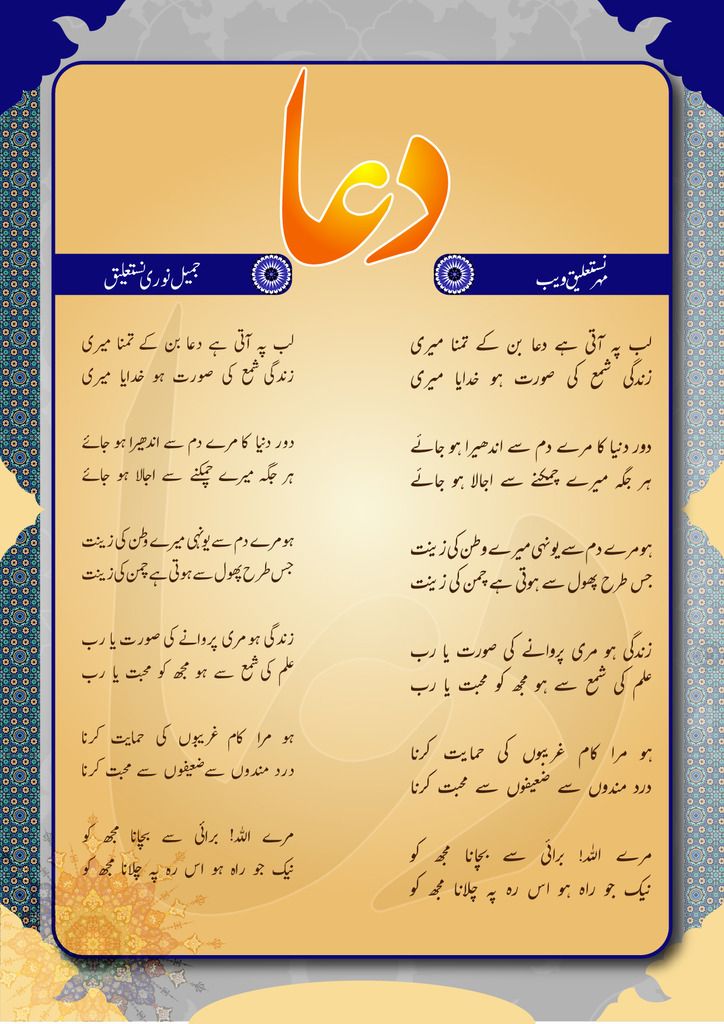 دعا
مہر نستعلیق ویب
لب پہ آتی ہے دعا بن کے تمنا میری
زندگی شمع کی صورت ہو خدایا میری
دور دنیا کا مرے دم سے اندھیرا ہو جائے
ہر جگہ میرے چمکنے سے اجالا ہو جائے
ہو مرے دم سے یونہی میرے وطن کی زینت
جس طرح پھول سے ہوتی ہے چمن کی زینت
زندگی ہو مری پروانے کی صورت یا رب
علم کی شمع سے ہو مجھ کو محبت یا رب
ہو مرا کام غریبوں کی حمایت کرنا
درد مندوں سے ضعیفوں سے محبت کرنا
مرے اللہ! برائی سے بچانا مجھ کو
نیک جو راہ ہو اس رہ پہ چلانا مجھ کو
جمیل نوری نستعلیق
لب پہ آتی ہے دعا بن کے تمنا میری
زندگی شمع کی صورت ہو خدایا میری
دور دنیا کا مرے دم سے اندھیرا ہو جائے
ہر جگہ میرے چمکنے سے اجالا ہو جائے
ہو مرے دم سے یونہی میرے وطن کی زینت
جس طرح پھول سے ہوتی ہے چمن کی زینت
زندگی ہو مری پروانے کی صورت یا رب
علم کی شمع سے ہو مجھ کو محبت یا رب
ہو مرا کام غریبوں کی حمایت کرنا
درد مندوں سے ضعیفوں سے محبت کرنا
مرے اللہ! برائی سے بچانا مجھ کو
نیک جو راہ ہو اس رہ پہ چلانا مجھ کو